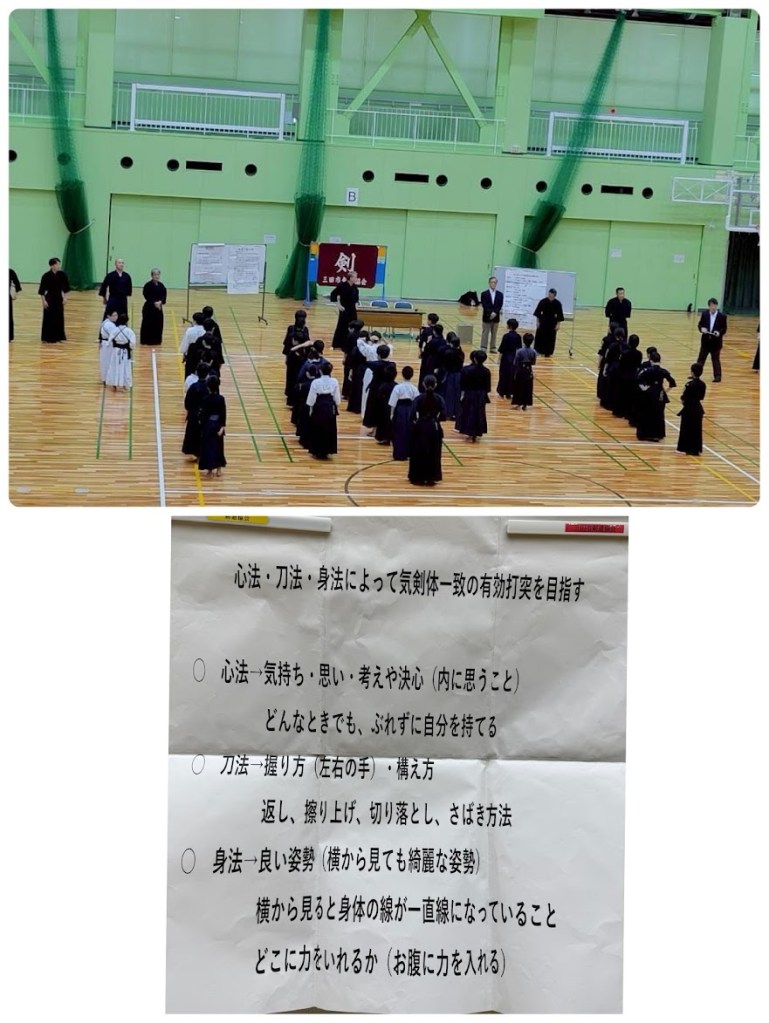 B
剣
心法・刀法・身法によって気剣体一致の有効打突を目指す
○ 心法→気持ち・思い・考えや決心（内に思うこと）
どんなときでも、ぶれずに自分を持てる
○ 刀法→握り方（左右の手）・構え方
返し、擦り上げ、切り落とし、さばき方法
○ 身法→良い姿勢（横から見ても綺麗な姿勢）
横から見ると身体の線が一直線になっていること
どこに力をいれるか（お腹に力を入れる）